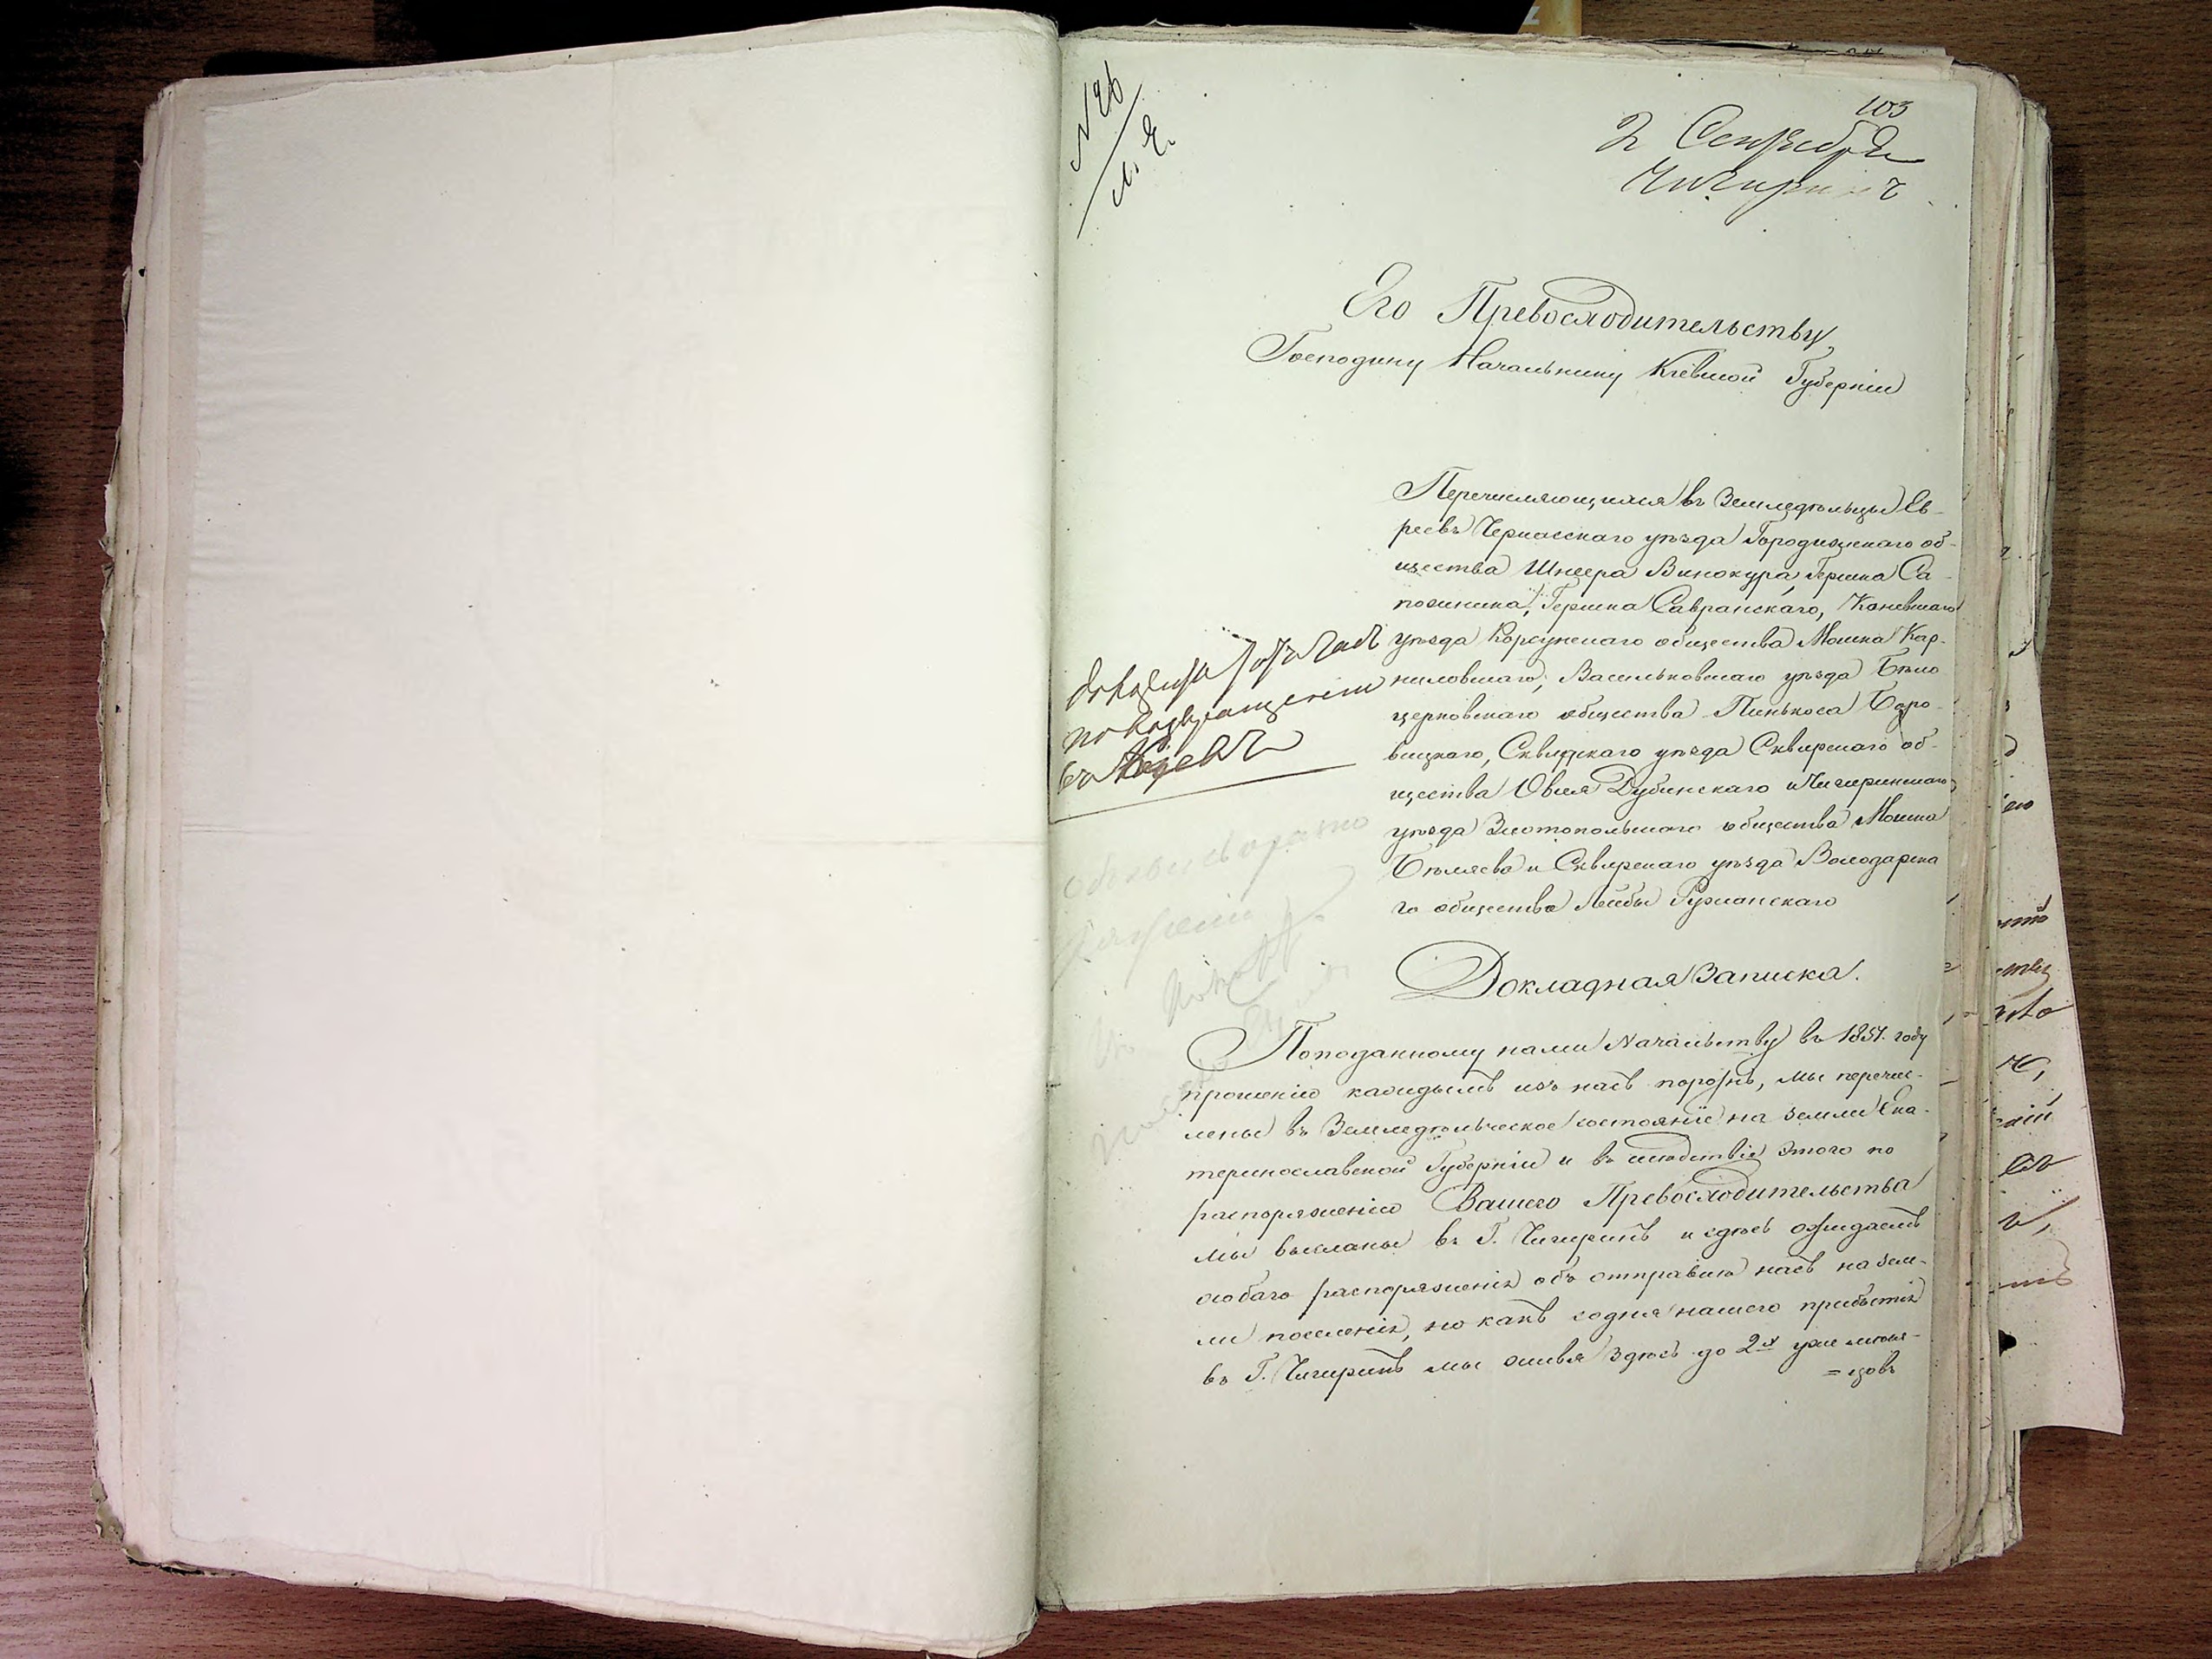 103
2 Сентября
Чигиринъ
Его Превосходительству
Господину Начальнику Кіевской Губерніи
Перечисляющихся въ Земледѣльцы Ев-
реевъ Черкасскаго уѣзда Городищенскаго об-
щества Шнеера Винокура, Гершка Са-
пожника, Гершка Савранскаго, Каневскаго
уѣзда Корсунскаго общества Мошка Кар-
ниловскаго, Васильковскаго уѣзда Бѣло
церковскаго общества Пинькоса Боро-
вицкаго, Сквирскаго уѣзда Сквирскаго об-
щества Овсея Дубинскаго и Чигиринскаго
уѣзда Златопольскаго общества Мошка
Бѣляева и Сквирскаго уѣзда Володарска
го общества Лейбы Ружанскаго
по возвращеніи
въ Кіевъ
Докладная Записка.
Поподанному нами Начальству въ 1851. году
прошенію каждымъ изъ насъ порознь, мы перечис-
лены въ Земледѣльческое состояніе на земли Ека-
теринославской Губерніи и въ слѣдствіе этого по
распоряженію Вашего Превосходительства
мы высланы въ Г. Чигиринъ и здѣсь ожидаемъ
особаго распоряженія объ отправкѣ насъ на зем-
ли поселенія, но какъ содня нашего прибытія
въ Г. Чигиринъ мы живя здѣсь до 2х уже мѣся-
=цовъ